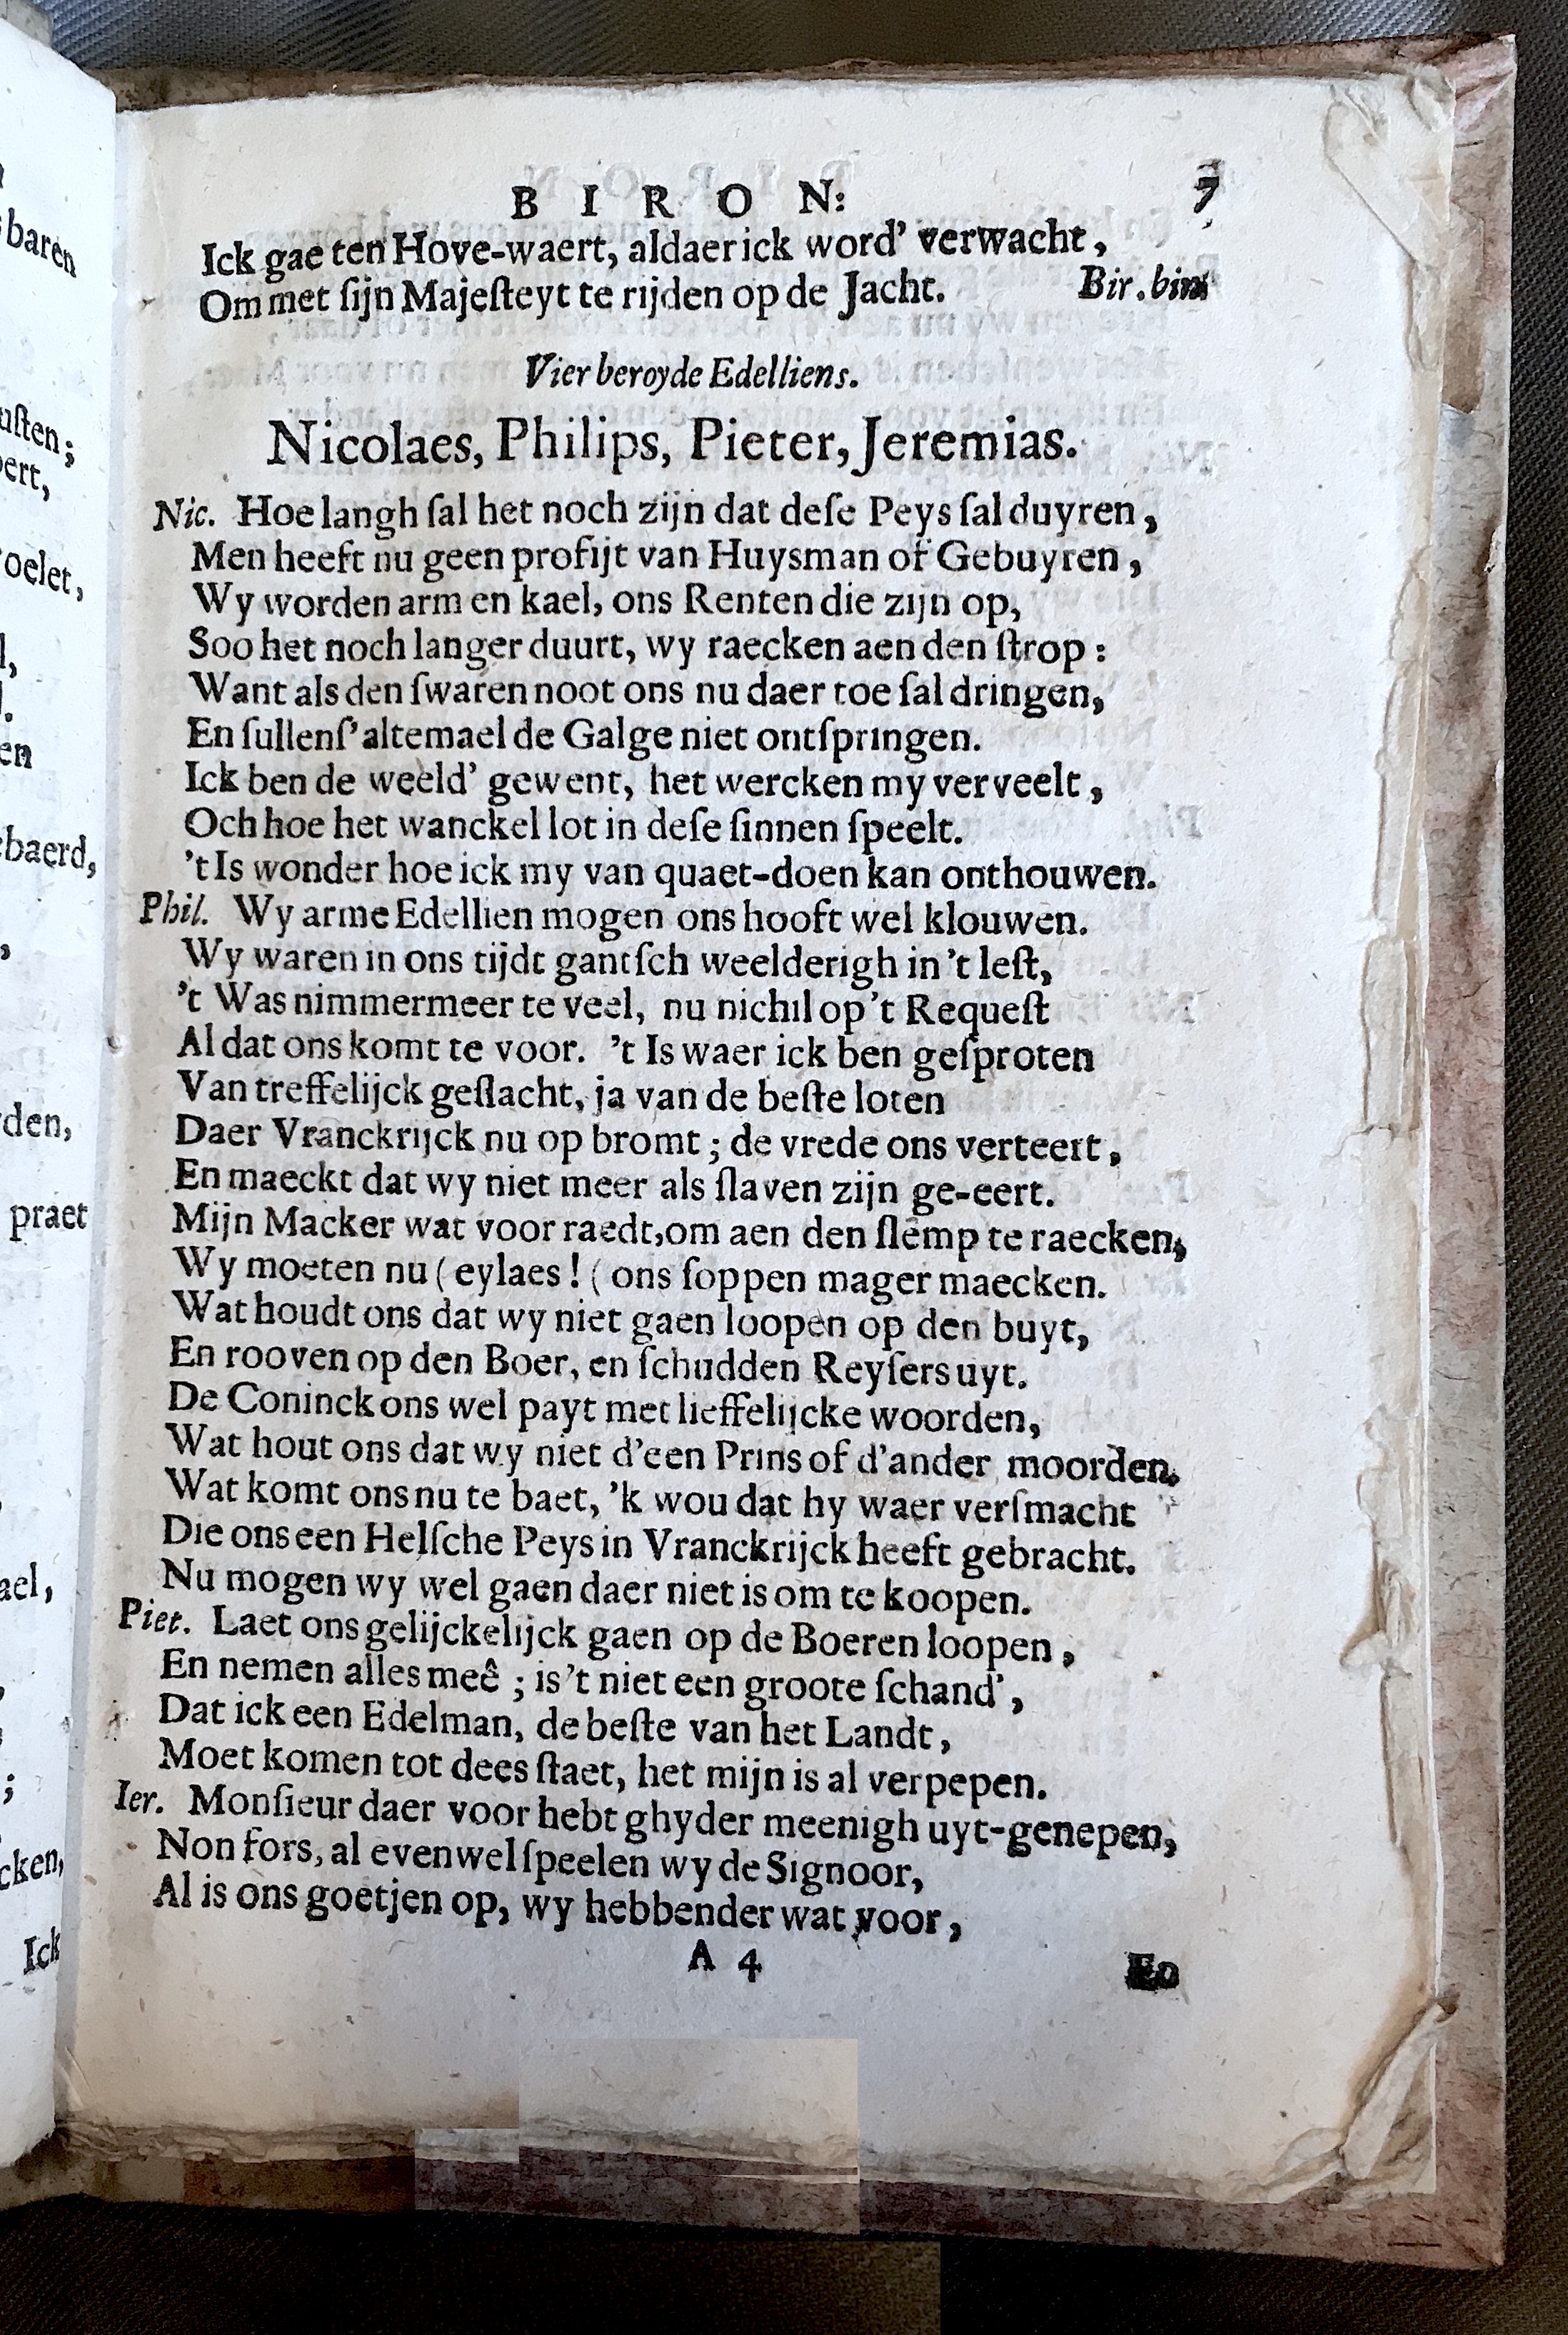 BIRON:
7
Ick gae ten Hove-waert, aldaer ick word' verwacht,
Om met ſijn Majeſteyt te rijden op de Jacht. Bir. bin
Vier beroyde Edelliens.
Nicolaes, Philips, Pieter, Jeremias.
Nic. Hoe langh ſal het noch zijn dat deſe Peys ſal duyren,
Men heeft nu geen profijt van Huysman of Gebuyren,
Wy worden arm en kael, ons Renten die zijn op,
Soo het noch langer duurt, wy raecken aen den ſtrop:
Want als den ſwaren noot ons nu daer toe ſal dringen,
En ſullenſ' altemael de Galge niet ontſpringen.
Ick ben de weeld' gewent, het wercken my verveelt,
Och hoe het wanckel lot in deſe ſinnen ſpeelt.
't Is wonder hoe ick my van quaet-doen kan onthouwen.
Phil. Wy arme Edellien mogen ons hooft wel klouwen.
Wy waren in ons tijdt gantſch weelderigh in 't leſt,
't Was nimmermeer te veel, nu nichil op 't Requeſt
Al dat ons komt te voor. 't Is waer ick ben geſproten
Van treffelijck geſlacht, ja van de beſte loten
Daer Vranckrijck nu op bromt; de vrede ons verteert,
En maeckt dat wy niet meer als ſlaven zijn ge-eert.
Mijn Macker wat voor raedt, om aen den ſlemp te raecken,
Wy moeten nu ( eylaes! ( ons ſoppen mager maecken.
Wat houdt ons dat wy niet gaen loopen op den buyt,
En rooven op den Boer, en ſchudden Reyſers uyt.
De Coninck ons wel payt met lieffelijcke woorden,
Wat hout ons dat wy niet d'een Prins of d'ander moorden.
Wat komt ons nu te baet, 'k wou dat hy waer verſmacht
Die ons een Helſche Peys in Vranckrijck heeft gebracht.
Nu mogen wy wel gaen daer niet is om te koopen.
Piet. Laet ons gelijckelijck gaen op de Boeren loopen,
En nemen alles meê; is 't niet een groote ſchand',
Dat ick een Edelman, de beſte van het Landt,
Moet komen tot dees ſtaet, het mijn is al verpepen.
Ier. Monſieur daer voor hebt ghyder meenigh uyt-genepen,
Non fors, al evenwel ſpeelen wy de Signoor,
Al is ons goetjen op, wy hebbender wat voor,
A 4
baren
uſten;
ert,
oelet,
l,
en
baerd,
den,
praet
ael,
;
cken,
Ick